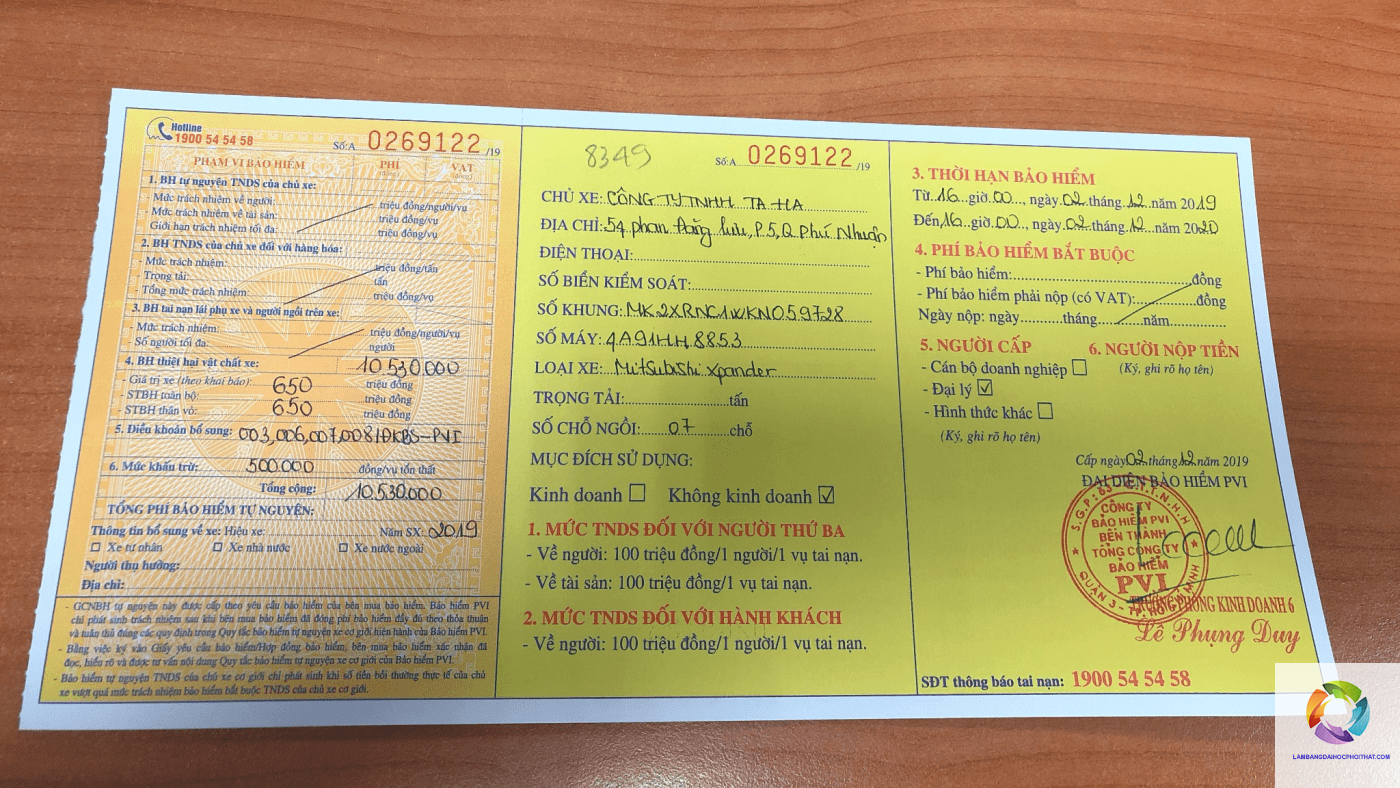 Hotline
1900 54 54 58
Số:A 0269122 /19
PHẠM VI BẢO HIỂM PHÍ (đồng) VAT (đồng)
1. BH tự nguyện TNDS của chủ xe:
- Mức trách nhiệm về người: triệu đồng/người/vụ
- Mức trách nhiệm về tài sản: triệu đồng/vụ
Giới hạn trách nhiệm tối đa: triệu đồng/vụ
2. BH TNDS của chủ xe đối với hàng hóa:
- Mức trách nhiệm: triệu đồng/tấn
- Trọng tải: tấn
- Tổng mức trách nhiệm: triệu đồng/vụ
3. BH tai nạn lái phụ xe và người ngồi trên xe:
- Mức trách nhiệm: triệu đồng/người/vụ
- Số người tối đa: người
4. BH thiệt hại vật chất xe: 10 530.000
- Giá trị xe (theo khai báo): 650 triệu đồng
- STBH toàn bộ: triệu đồng
- STBH thân vỏ: 650 triệu đồng
5. Điều khoản bổ sung: 003,006,007,008/ĐKBS-PVI
6. Mức khấu trừ: 500.000 đồng/vụ tổn thất
Tổng cộng: 10.530.000
TỔNG PHÍ BẢO HIỂM TỰ NGUYỆN:
Thông tin bổ sung về xe: Hiệu xe: Năm SX: 2019
Xe tư nhân Xe nhà nước Xe nước ngoài
Người thụ hưởng:
Địa chỉ:
- GCNBH tự nguyện này được cấp theo yêu cầu bảo hiểm của bên mua bảo hiểm. Bảo hiểm PVI
chỉ phát sinh trách nhiệm sau khi bên mua bảo hiểm đã đóng phí bảo hiểm đầy đủ theo thỏa thuận
và tuân thủ đúng các quy định trong Quy tắc bảo hiểm tự nguyện xe cơ giới hiện hành của Bảo hiểm PVI.
- Bằng việc ký vào Giấy yêu cầu bảo hiểm/Hợp đồng bảo hiểm, bên mua bảo hiểm xác nhận đã
đọc, hiểu rõ và được tư vấn nội dung Quy tắc bảo hiểm tự nguyện xe cơ giới của Bảo hiểm PVI.
- Bảo hiểm tự nguyện TNDS của chủ xe cơ giới chỉ phát sinh khi số tiền bồi thường thực tế của chủ
xe vượt quá mức trách nhiệm bảo hiểm bắt buộc TNDS của chủ xe cơ giới.
8349
Số:A 0269122 /19
CHỦ XE: CÔNG TY TNHH TA-HA
ĐỊA CHỈ: 54 phan Đăng Lưu, P5, Q Phú Nhuận
ĐIỆN THOẠI:
SỐ BIỂN KIỂM SOÁT:
SỐ KHUNG: MK2XRNC1WKN059728
SỐ MÁY: 4A91HH8853
LOẠI XE: Mitsubishi Xpander
TRỌNG TẢI: tấn
SỐ CHỖ NGỒI: 07 chỗ
MỤC ĐÍCH SỬ DỤNG:
Kinh doanh Không kinh doanh
1. MỨC TNDS ĐỐI VỚI NGƯỜI THỨ BA
- Về người: 100 triệu đồng/1 người/1 vụ tai nạn.
- Về tài sản: 100 triệu đồng/1 vụ tai nạn.
2. MỨC TNDS ĐỐI VỚI HÀNH KHÁCH
- Về người: 100 triệu đồng/1 người/1 vụ tai nạn.
3. THỜI HẠN BẢO HIỂM
Từ 16 giờ 00, ngày 02 tháng 12 năm 2019
Đến 16 giờ 00, ngày 02 tháng 12 năm 2020
4. PHÍ BẢO HIỂM BẮT BUỘC
- Phí bảo hiểm: đồng
- Phí bảo hiểm phải nộp (có VAT): đồng
Ngày nộp: ngày tháng năm
5. NGƯỜI CẤP 6. NGƯỜI NỘP TIỀN
- Cán bộ doanh nghiệp (Ký, ghi rõ họ tên)
- Đại lý
- Hình thức khác
(Ký, ghi rõ họ tên)
Cấp ngày 02 tháng 12 năm 2019
ĐẠI DIỆN BẢO HIỂM PVI
CÔNG TY
BẢO HIỂM PVI
BẾN THÀNH
TỔNG CÔNG TY
BẢO HIỂM
PVI
QUẬN 3 - TP. HỒ CHÍ MINH
TRƯỞNG PHÒNG KINH DOANH 6
Lê Phụng Duy
SĐT thông báo tai nạn: 1900 54 54 58
LAMBANGDAIHOCPHOITHAT.COM